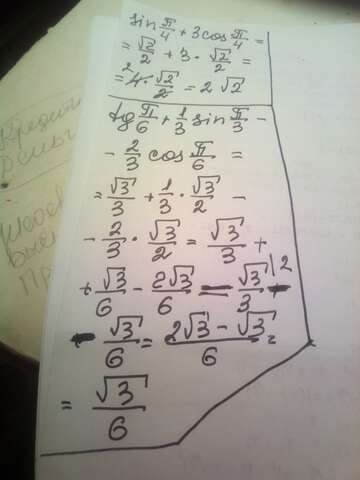 sin π/4 + 3cos π/4 =
= √2/2 + 3 · √2/2 =
= 4 · √2/2 = 2√2
2
tg π/6 + 1/3 sin π/3 -
- 2/3 cos π/6 =
= √3/3 + 1/3 · √3/2 -
- 2/3 · √3/2 = √3/3 +
+ √3/6 - 2√3/6 = √3/3 -
- √3/6 = 2√3 - √3/6 =
= √3/6
Кредит
День